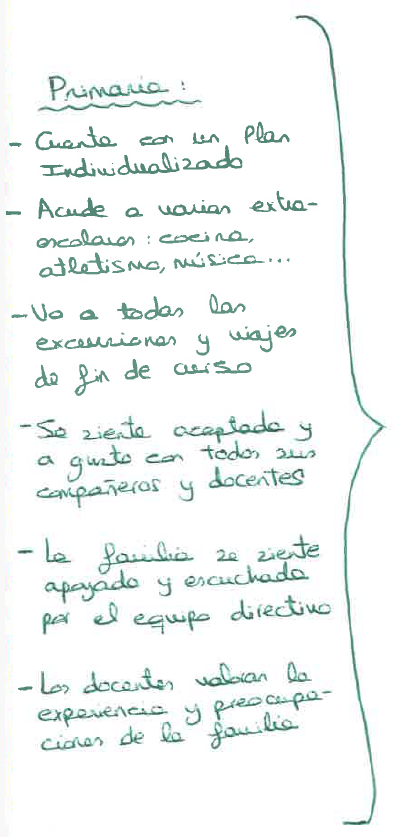 Primaria:
- Cuenta con un Plan
Individualizado
- Acude a varias extra-
escolares: cocina,
atletismo, música...
- Va a todas las
excursiones y viajes
de fin de curso
- Se siente aceptada y
a gusto con todos sus
compañeros y docentes
- La familia se siente
apoyada y escuchada
por el equipo directivo
- Los docentes valoran la
experiencia y preocupa-
ciones de la familia